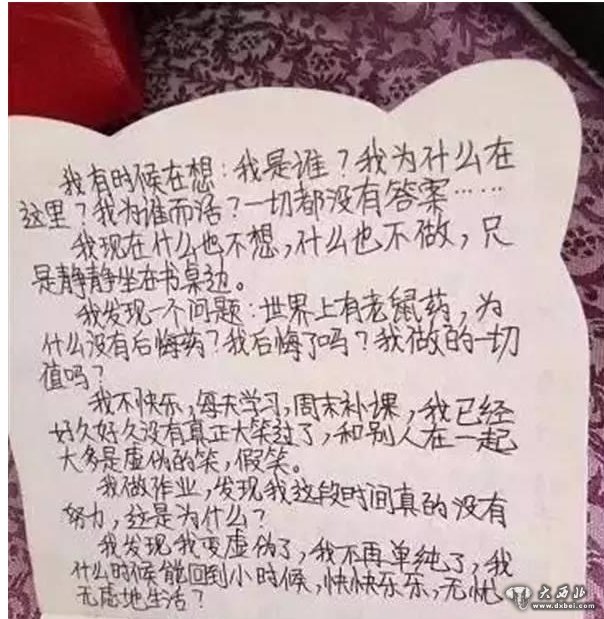 我有时候在想:我是谁?我为什么在
这里?我为谁而活?一切都没有答案……
我现在什么也不想,什么也不做,只
是静静坐在书桌边。
我发现一个问题:世界上有老鼠药,为
什么没有后悔药?我后悔了吗?我做的一切
值吗?
我不快乐,每天学习,周末补课,我已经
好久好久没有真正大笑过了,和别人在一起
大多是虚伪的笑,假笑。
我做作业,发现我这段时间真的没有
努力,这是为什么?
我发现我变虚伪了,我不再单纯了,我
什么时候能回到小时候,快快乐乐,无忧
无虑地生活?
大西北
www.dxbei.com